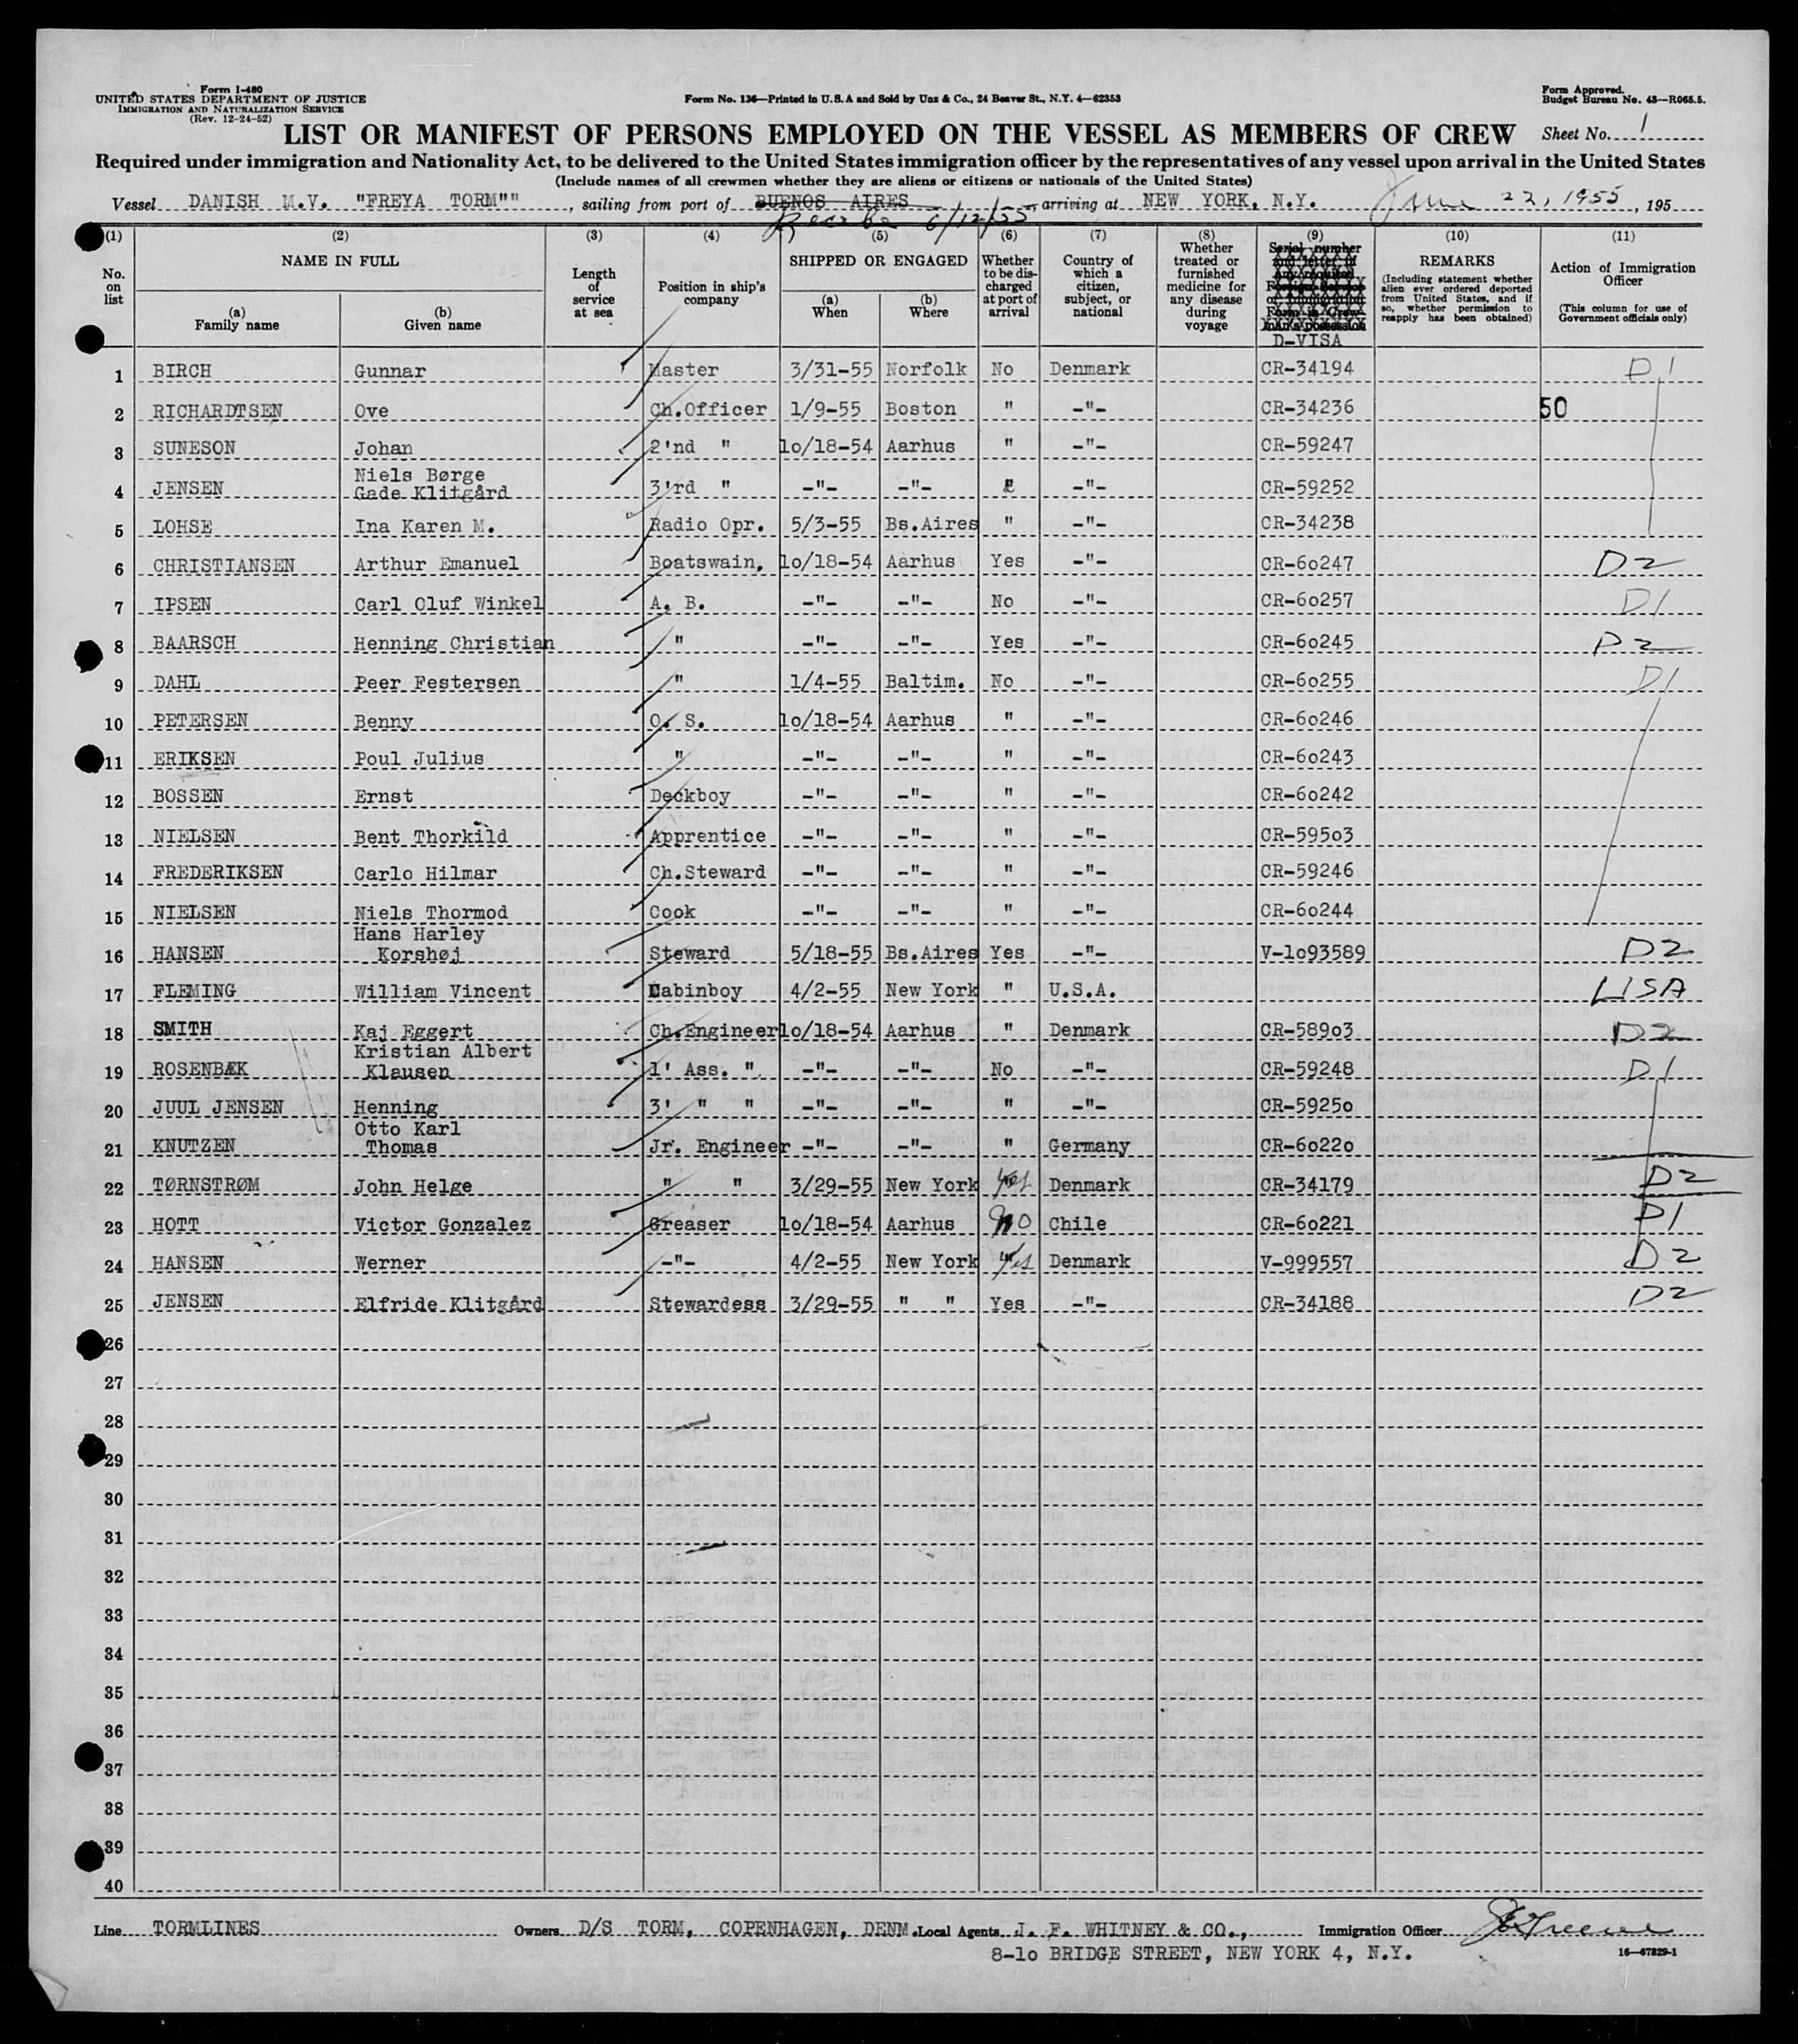 Form I-480
UNITED STATES DEPARTMENT OF JUSTICE
IMMIGRATION AND NATURALIZATION SERVICE
(Rev. 12-24-52)
Form No. 136—Printed in U.S.A and Sold by Unz & Co., 24 Beaver St., N.Y. 4—62353
Form Approved.
Budget Bureau No. 43—R065.5.
LIST OR MANIFEST OF PERSONS EMPLOYED ON THE VESSEL AS MEMBERS OF CREW Sheet No. 1
Required under immigration and Nationality Act, to be delivered to the United States immigration officer by the representatives of any vessel upon arrival in the United States
(Include names of all crewmen whether they are aliens or citizens or nationals of the United States)
Vessel DANISH M.V. "FREYA TORM"" , sailing from port of BUENOS AIRES , arriving at NEW YORK, N.Y. June 22, 1955 , 195
6/12/55
(1) (2) (3) (4) (5) (6) (7) (8) (9) (10) (11)
No. on list
NAME IN FULL
(a) Family name
(b) Given name
Length of service at sea
Position in ship's company
SHIPPED OR ENGAGED
(a) When
(b) Where
Whether to be discharged at port of arrival
Country of which a citizen, subject, or national
Whether treated or furnished medicine for any disease during voyage
Serial number and letter of any required Foreign Service or Immigration Form in Crewman's possession
D-VISA
REMARKS
(Including statement whether alien ever ordered deported from United States, and if so, whether permission to reapply has been obtained)
Action of Immigration Officer
(This column for use of Government officials only)
1 BIRCH Gunnar Master 3/31-55 Norfolk No Denmark CR-34194 D1
2 RICHARDTSEN Ove Ch.Officer 1/9-55 Boston " -"- CR-34236 50
3 SUNESON Johan 2'nd " 1o/18-54 Aarhus " -"- CR-59247
4 JENSEN Niels Børge Gade Klitgård 3'rd " -"- -"- " -"- CR-59252
5 LOHSE Ina Karen M. Radio Opr. 5/3-55 Bs.Aires " -"- CR-34238
6 CHRISTIANSEN Arthur Emanuel Boatswain, 1o/18-54 Aarhus Yes -"- CR-6o247 D2
7 IPSEN Carl Oluf Winkel A. B. -"- -"- No -"- CR-6o257 D1
8 BAARSCH Henning Christian " -"- -"- Yes -"- CR-6o245 D2
9 DAHL Peer Festersen " 1/4-55 Baltim. No -"- CR-6o255 D1
10 PETERSEN Benny O. S. 1o/18-54 Aarhus " -"- CR-6o246
11 ERIKSEN Poul Julius " -"- -"- " -"- CR-6o243
12 BOSSEN Ernst Deckboy -"- -"- " -"- CR-6o242
13 NIELSEN Bent Thorkild Apprentice -"- -"- " -"- CR-595o3
14 FREDERIKSEN Carlo Hilmar Ch.Steward -"- -"- " -"- CR-59246
15 NIELSEN Niels Thormod Cook -"- -"- " -"- CR-6o244
16 HANSEN Hans Harley Korshøj Steward 5/18-55 Bs.Aires Yes -"- V-1o93589 D2
17 FLEMING William Vincent Cabinboy 4/2-55 New York " U.S.A. USA
18 SMITH Kaj Eggert Ch.Engineer 1o/18-54 Aarhus " Denmark CR-589o3 D2
19 ROSENBÆK Kristian Albert Klausen 1' Ass. " -"- -"- No -"- CR-59248 D1
20 JUUL JENSEN Henning 3' " " -"- -"- " -"- CR-5925o
21 KNUTZEN Otto Karl Thomas Jr. Engineer -"- -"- " Germany CR-6o22o
22 TØRNSTRØM John Helge " " 3/29-55 New York Yes Denmark CR-34179 D2
23 HOTT Victor Gonzalez Greaser 1o/18-54 Aarhus No Chile CR-6o221 D1
24 HANSEN Werner -"- 4/2-55 New York Yes Denmark V-999557 D2
25 JENSEN Elfride Klitgård Stewardess 3/29-55 " " Yes -"- CR-34188 D2
26
27
28
29
30
31
32
33
34
35
36
37
38
39
40
Line TORMLINES Owners D/S TORM, COPENHAGEN, DENM. Local Agents J. F. WHITNEY & CO., Immigration Officer
8-1o BRIDGE STREET, NEW YORK 4, N.Y. 16—67829-1